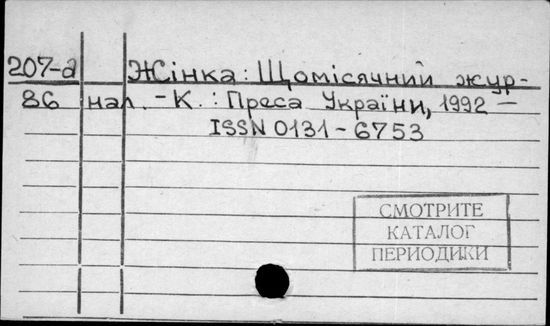 207-а Жінка: Щомісячний жур-
86 нал. - К.: Преса України, 1992 —
ISSN 0131-6753
СМОТРИТЕ
КАТАЛОГ
ПЕРИОДИКИ